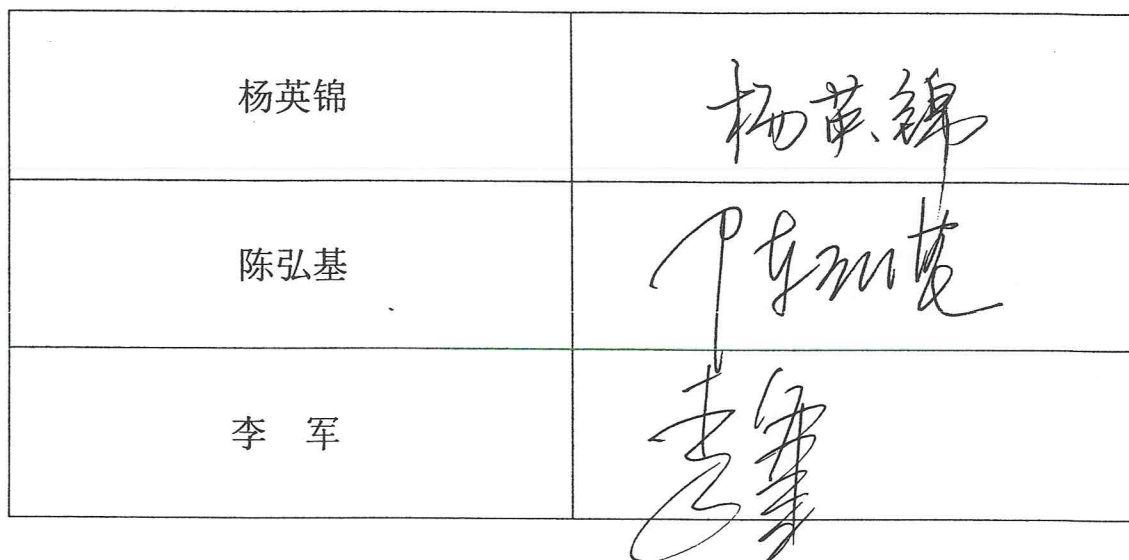 杨英锦 杨英锦
陈弘基 陈弘基
李 军 李军